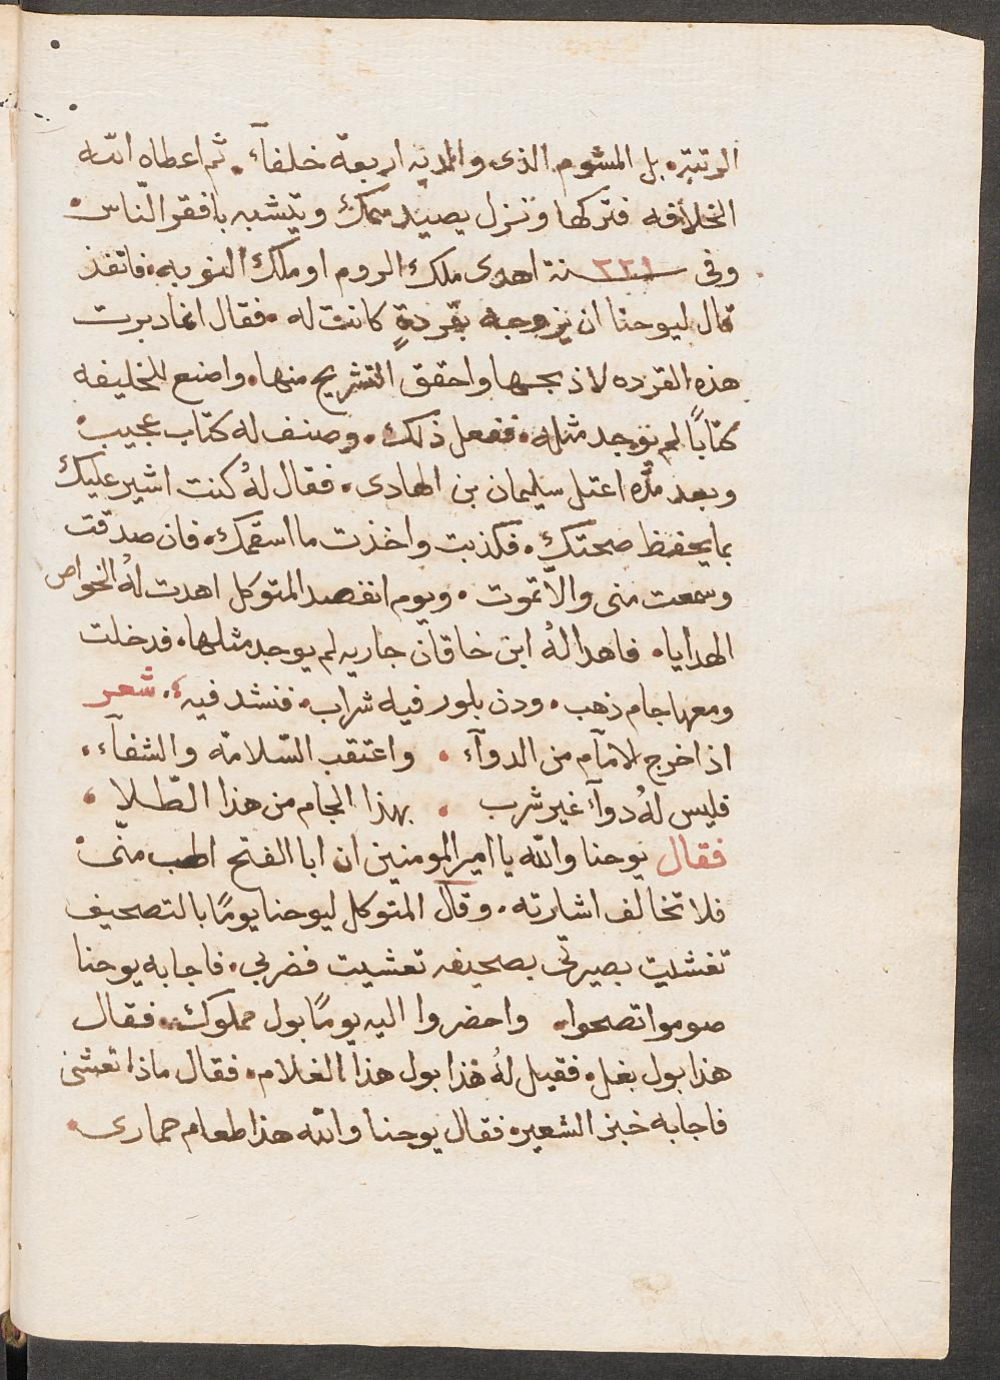 الرتبه. بل المشوم الذى والديه اربعة خلفآء. ثم اعطاه الله
الخلافه فتركها ونزل يصيد سمك ويتشبه بافقر النّاس
وفى سنة ٢٢١ اهدى ملك الروم او ملك النوبه. فاتفذ
قال ليوحنا ان يزوجه بقردةٍ كانت له. فقال انما دبرت
هذه القرده لاذبحها واحقق التشريح منها. واضع للخليفه
كتاباً لم يوجد مثله. ففعل ذلك. وصنف له كتاب عجيب
وبعد مدّه اعتل سليمان بن الهادى. فقال لهُ كنت اشير عليك
بما يحفظ صحتك. فكذبت واخذت ما اسقمك. فان صدقت
وسمعت منى والاّ تموت. ويوم انفصد المتوكل اهدت لهُ الخواص
الهدايا. فاهدا لهُ ابن خاقان جاريه لم يوجد مثلها. فدخلت
ومعها جام ذهب. ودن بلور فيه شراب. فنشد فيه. شعر
اذا خرج الامآم من الدوآء . واعتقب السّلامه والشفآء.
فليس لهُ دوآء غير شرب . بهذا الجام من هذا الطّلا
فقال يوحنا والله يا امير المومنين ان ابا الفتح اطب منّى
فلا تخالف اشارته. وقال المتوكل ليوحنا يومًا بالتصحيف
تغشيت بصيرتى بصحيفه تعشيت فضربي. فاجابه يوحنا
صوموا تصحوا. واحضروا اليه يومًا بول مملوك. فقال
هذا بول بغل. فقيل لهُ هذا بول هذا الغلام. فقال ماذا تعشى
فاجابه خبز الشعير. فقال يوحنا والله هذا طعام حمارى.